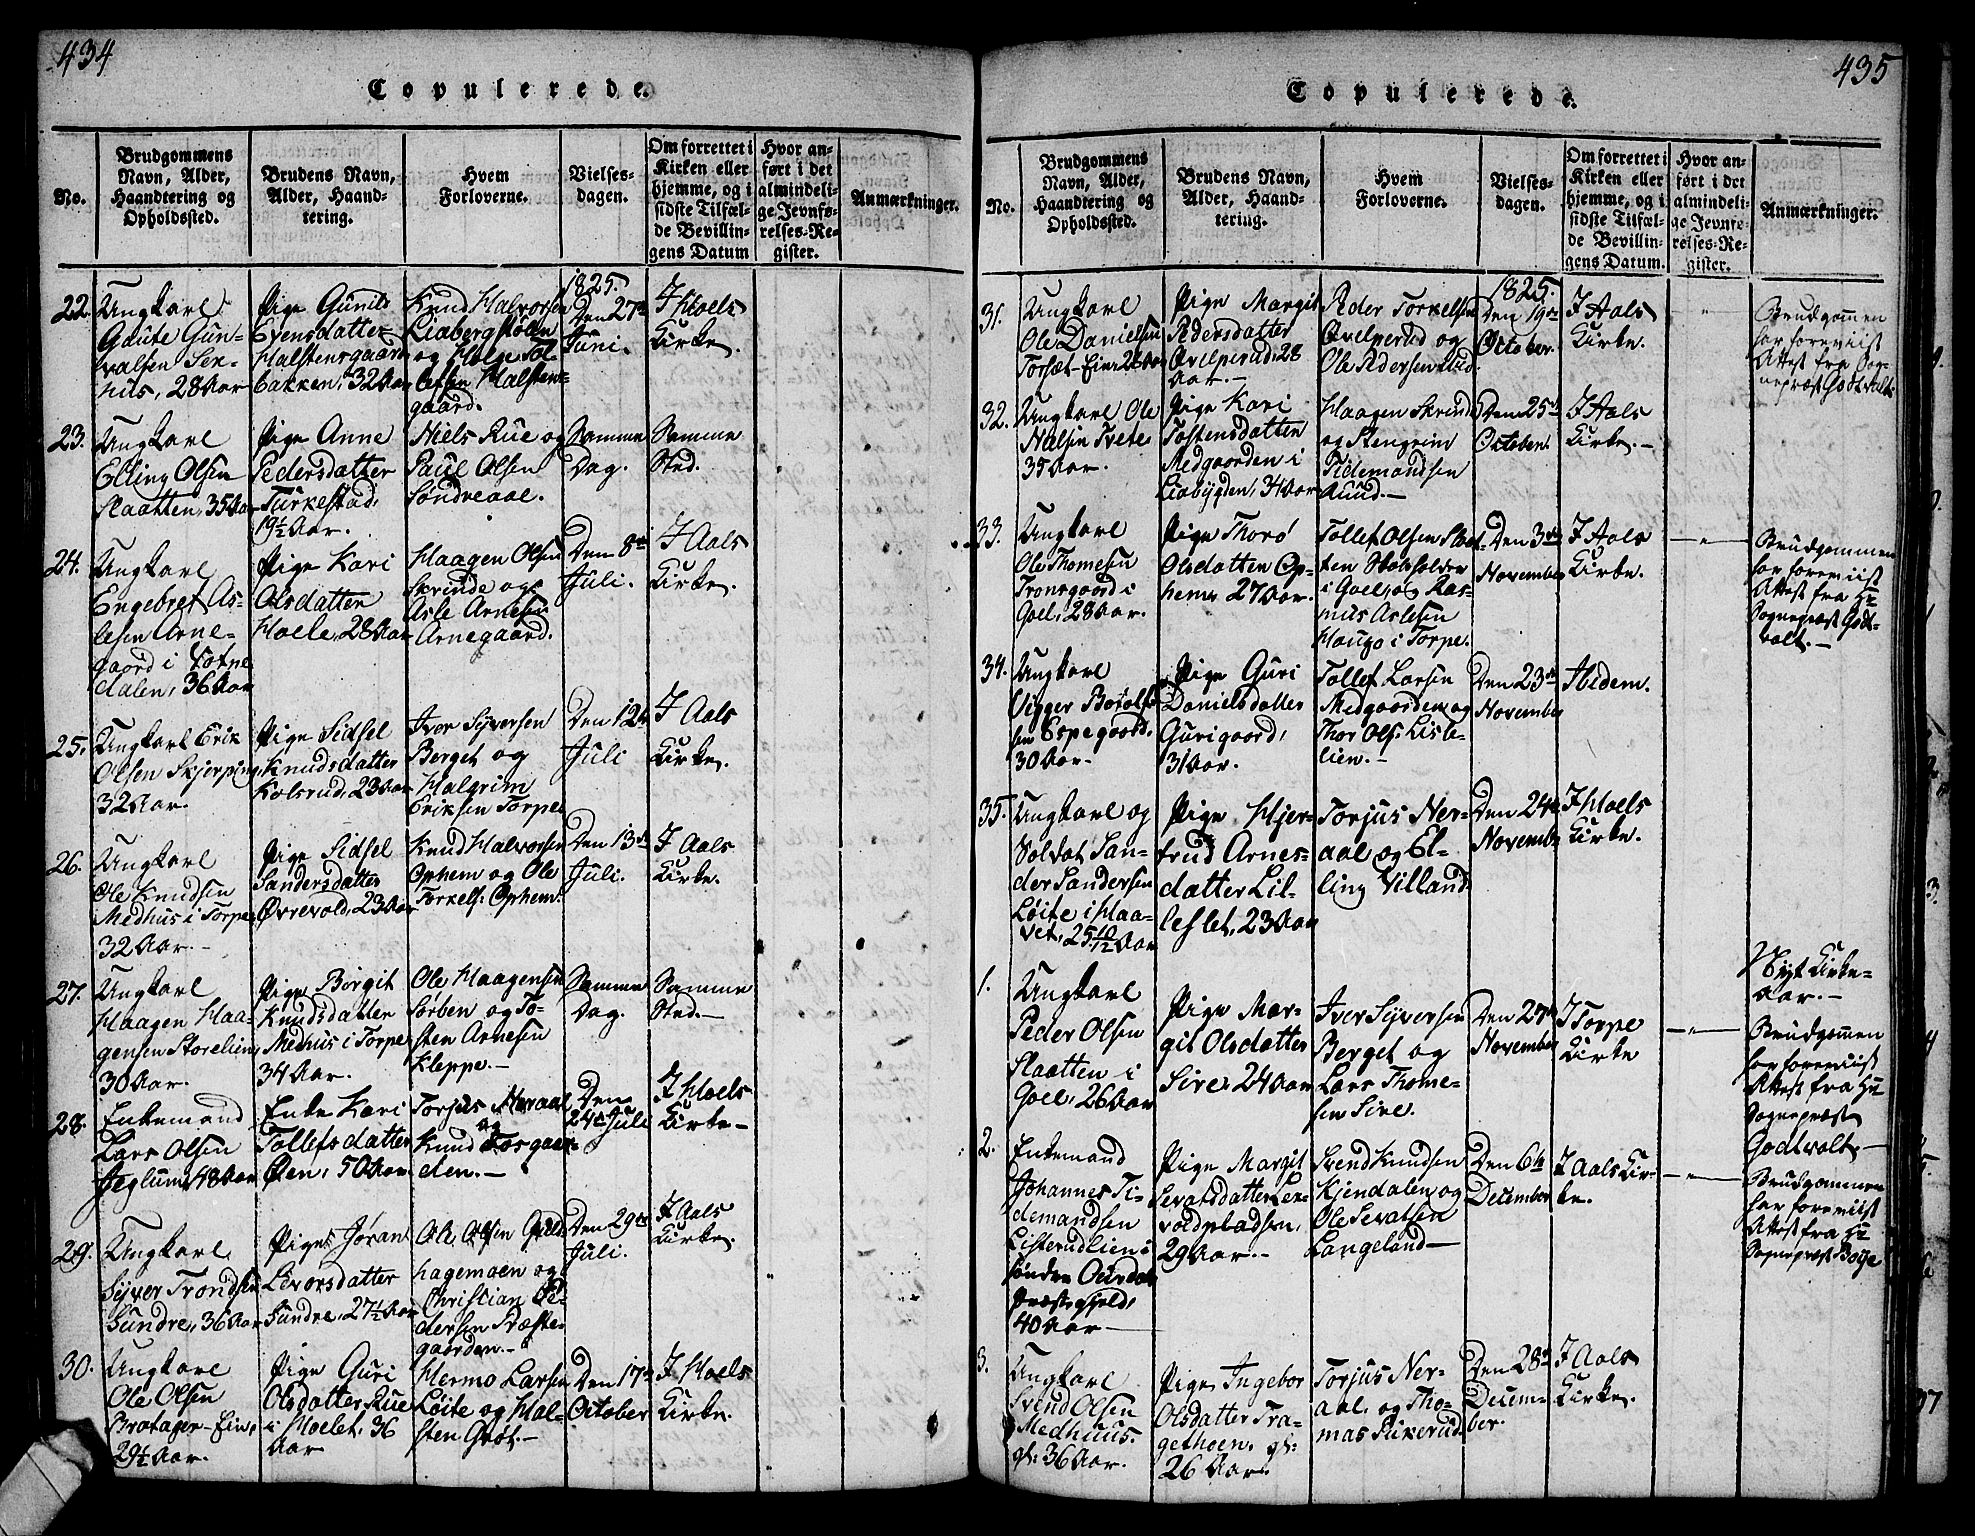 434
Copulerede.
No.
Brudgommens
Navn, Alder,
Haandtering og
Opholdssted.
Brudens Navn,
Alder, Haand-
tering.
Hvem
Forloverne.
Vielses-
dagen.
Om forrettet i
Kirken eller
hjemme, og i
sidste Tilfæl-
de Bevillin-
gens Datum
Hvor an-
ført i det
almindeli-
ge Jevnfø-
relses-Re-
gister.
Anmærkninger.
22.
Ungkarl
Gaute Gun-
valsen
28 Aar
Pige Gunild
Evensdatter
Halstensgaard-
bakken, 32 Aar
Knud Halvorsen
Liabergstølen
og Helge Tol-
lefsen Halsten-
gaard.
1825.
Den 27de
Juni.
I Hoels
Kirke.
23.
Ungkarl
Elling Olsen
Slaatten, 35 Aar
Pige Anne
Pedersdatter
Turkestad,
19½ Aar.
Niels Rue og
Paul Olsen
Søndreaal.
Samme
Dag.
Samme
Sted.
24.
Ungkarl
Engebret As-
lesen Arne-
gaard i Votne
dalen, 36 Aar
Pige Kari
Olsdatter
Hoele, 28 Aar
Haagen Olsen
Skrinde og
Asle Arnesen
Arnegaard.
Den 8de
Juli.
I Aals
Kirke.
25.
Ungkarl Erik
Olsen Skjerping,
32 Aar.
Pige Sidsel
Knudsdatter
Kolsrud, 23 Aar
Iver Syversen
Berget og
Halgrim
Eriksen Torpe
Den 12te
Juli
I Aals
Kirke.
26.
Ungkarl
Ole Knudsen
Medhus i Torpe,
32 Aar.-
Pige Sidsel
Sandersdatter
Øvrevold, 23 Aar
Knud Halvorsen
Ophem og Ole
Torkels: Opheim.
Den 13de
Juli.
I Aals
Kirke.
27.
Ungkarl
Haagen Haa-
gensen Storelien,
30 Aar.
Pige Børgit
Knudsdatter
Medhus i Torpe
34 Aar.
Ole Haagensen
Sørben og To-
sten Arnesen
Kleppe.-
Samme
Dag.
Samme
Sted.-
28.
Enkemand
Lars Olsen
Jeglum, 48 Aar
Enke Kari
Tollefsdatter
Øen, 50 Aar
Torjus Neraal
og
Knud Torsgaar-
den.-
Den
24de Juli
I Hoels
Kirke-
29.
Ungkarl
Syver Trondsen
Sundre, 36 Aar
Pige Jøran
Levorsdatter
Sundre, 27½ Aar
Ole Olsen Guld-
hagemoen og
Christian Pe-
dersen Præste-
gaarden.-
Den 29de
Juli.
I Aals
Kirke.
30.
Ungkarl
Ole Olsen
Brotager-Ein,
29½ Aar.
Pige Guri
Olsdatter Rue
i Hoelet, 36
Aar
Hermo Larsen
Løite og Hal-
sten Grøt.-
Den 17de
October
I Hoels
Kirke.
435
Copulerede.
No.
Brudgommens
Navn, Alder,
Haandtering og
Opholdssted.
Brudens Navn,
Alder, Haand-
tering.
Hvem
Forloverne.
Vielses-
dagen.
Om forrettet i
Kirken eller
hjemme, og i
sidste Tilfæl-
de Bevillin-
gens Datum.
Hvor an-
ført i det
almindeli-
ge Jevnfø-
relses-Re-
gister.
Anmærkninger.
31.
Ungkarl
Ole Danielsen
Torsæt-Eie
Pige Margit
Pedersdatter
Qvelperud, 28
Aar.-
Peder Torkelsen
Qvelperud og
Ole Pedersen
1825.
Den 19de
October.
I Aals
Kirke.
-"-
Brudgommen
har foreviist
Attest fra Sog-
nepræst Godtvalt
32.
Ungkarl Ole
Nilsen Tvete
35 Aar.
Pige Kari
Tostensdatter
Medgaarden i
Liabygden, 31 Aar
Haagen Skrinde
og Stengrim
Tidemandsen
Ruud.-
Den 25de
October.
I Aals
Kirke.-
33.
Ungkarl
Ole Thomesen
Tronsgaard i
Goel, 28 Aar.
Pige Thorø
Olsdatter Op-
hem, 27 Aar.
Tollef Olsen Slaat-
ten Huusholder
i Goel, og Ras-
mus Aslesen
Haugo i Torpe.
Den 3die
November
I Aals
Kirke.
-"-
Brudgommen
har foreviist
Attest fra Hr
Sognepræst Godt-
valt.-
34.
Ungkarl
Vigger Botolf-
sen Espegaard,
30 Aar.
Pige Guri
Danielsdatter
Gurigaard,
31 Aar.
Tollef Larsen
Medgaarden og
Thor Ols: Lisle-
lien.-
Den 23de
November
Ibidem.
35.
Ungkarl og
Soldat San-
der Sandersen
Løite i Haa-
vet, 25 10/12 Aar
Pige Hjer-
trud Arnes-
datter Lil-
leslet, 23 Aar
Torjus Ner-
aal og El-
ling Villand
Den 24de
November
I Hoels
Kirke.
Nyt Kirke-
aar.-
1.
Ungkarl
Peder Olsen
Slaatten i
Goel, 26 Aar
Pige Mar-
git Olsdatter
Sire, 24 Aar
Iver Syversen
Berget og
Lars Thome-
sen Sire.
Den 27de
November
I Torpe
Kirke
-"-
Brudgommen
har foreviist
Attest fra Hr
Sognepræst
Godtvalt.-
2.
Enkemand
Johannes Ti-
demandsen
Listerudlien i
søndre Ourdals
Præstegjeld,
40 Aar-
Pige Margit
Sevatsdatter Ler-
voldpladsen,
29 Aar.-
Svend Knudsen
Kjendalen og
Ole Sevatsen
Langeland-
Den 6te
December
I Aals Kir-
ke.
-"-
Brudgommen
har foreviist
Attest fra Hr
Sognepræst Boije
3.
Ungkarl
Svend Olsen
Medhuus.
gl: 36 Aar.
Pige Ingebor
Olsdatter Tra-
gethoen. gl:
26 Aar.
Torjus Ner-
aal og Tho-
mas Sukerud.
Den 28de
Decem-
ber.
I Aals
Kirke.